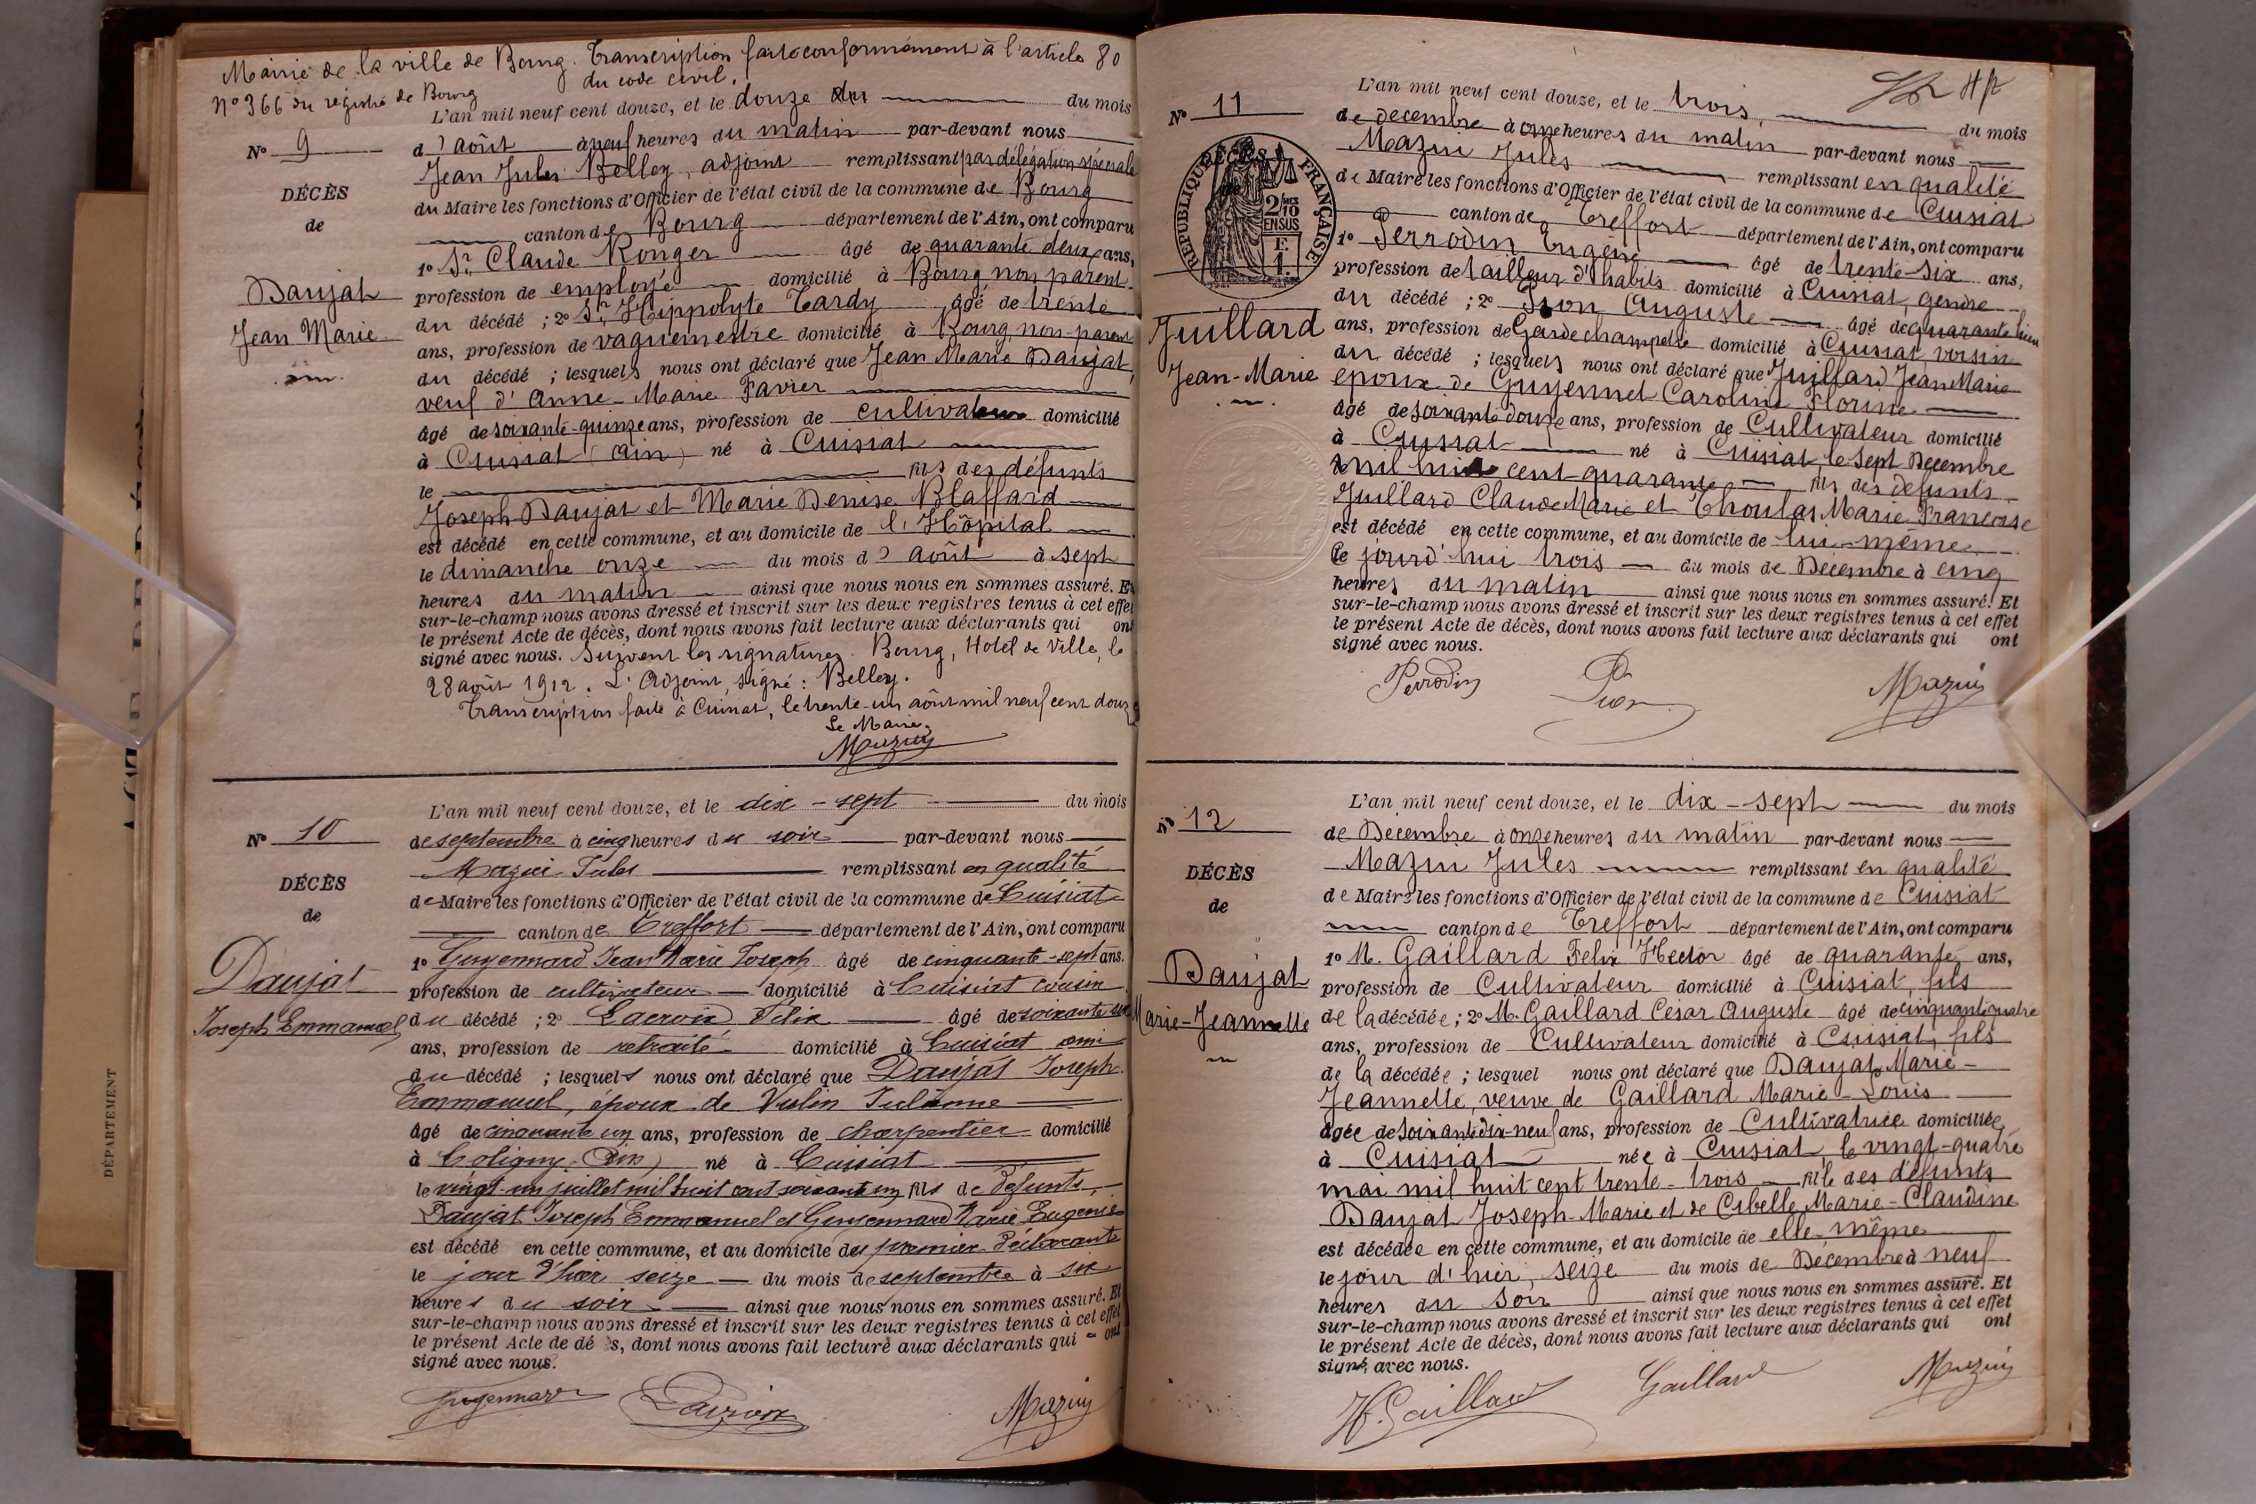 Mairie de la ville de Bourg. Transcription faite conformément à l'article 80
du code civil.
N° 366 du registre de Bourg
L'an mil neuf cent douze, et le douze du mois
N° 9
d'août à neuf heures du matin par-devant nous
Jean Jules Belley, adjoint remplissant par délégation spéciale
DÉCÈS
du Maire les fonctions d'Officier de l'état civil de la commune de Bourg
de
canton de Bourg département de l'Ain, ont comparu
1° Sr. Claude Ronger âgé de quarante deux ans,
Daujat
profession de employé domicilié à Bourg, non parent
Jean Marie
du décédé ; 2° Sr. Hippolyte Tardy âgé de trente
ans, profession de vaguemestre domicilié à Bourg, non parent
du décédé ; lesquels nous ont déclaré que Jean Marie Daujat,
veuf d'Anne-Marie Favier
âgé de soixante-quinze ans, profession de cultivateur domicilié
à Cuisiat (Ain) né à Cuisiat
le fils des défunts
Joseph Daujat et Marie Denise Blaffard
est décédé en cette commune, et au domicile de l'Hôpital
le dimanche onze du mois d'août à sept
heures du matin ainsi que nous nous en sommes assuré. Et
sur-le-champ nous avons dressé et inscrit sur les deux registres tenus à cet effet
le présent Acte de décès, dont nous avons fait lecture aux déclarants qui ont
signé avec nous. Suivent les signatures. Bourg, Hotel de Ville, le
28 août 1912. L'Adjoint, signé : Belley.
Transcription faite à Cuisiat, le trente-un août mil neuf cent douze
Le Maire,
Mazuy
L'an mil neuf cent douze, et le dix-sept du mois
N° 10
de septembre à cinq heures du soir par-devant nous
Mazui Jules remplissant en qualité
DÉCÈS
de Maire les fonctions d'Officier de l'état civil de la commune de Cuisiat
de
canton de Treffort département de l'Ain, ont comparu
1° Guyennard Jean Marie Joseph âgé de cinquante-sept ans.
Daujat
profession de cultivateur domicilié à Cuisiat cousin
Joseph Emmanuel
du décédé ; 2° Lacroix Félix âgé de soixante
ans, profession de retraité domicilié à Cuisiat ami
du décédé ; lesquels nous ont déclaré que Daujat Joseph
Emmanuel, époux de Vulin Julienne
âgé de cinquante un ans, profession de charpentier domicilié
à Coligny (Ain) né à Cuisiat
le vingt-un juillet mil huit cent soixante un fils de défunts
Daujat Joseph Emmanuel et Guyennard Marie Eugénie
est décédé en cette commune, et au domicile du premier déclarant
le jour d'hier seize du mois de septembre à six
heures du soir ainsi que nous nous en sommes assuré. Et
sur-le-champ nous avons dressé et inscrit sur les deux registres tenus à cet effet
le présent Acte de décès, dont nous avons fait lecture aux déclarants qui ont
signé avec nous.
Guyennard Lacroix Mazuy
DÉPARTEMENT
L'an mil neuf cent douze, et le trois, du mois
N° 11
de decembre à onze heures du matin par-devant nous
Mazui Jules remplissant en qualité
RÉPUBLIQUE FRANÇAISE
DÉCÈS
2/10 EN SUS
F. 1.
de Maire les fonctions d'Officier de l'état civil de la commune de Cuisiat
canton de Treffort département de l'Ain, ont comparu
1° Perrodin Eugène âgé de trente-six ans,
profession de tailleur d'habits domicilié à Cuisiat, gendre
Juillard
du décédé ; 2° Pion Auguste âgé de quarante
Jean-Marie
ans, profession de Garde champêtre domicilié à Cuisiat, voisin
du décédé ; lesquels nous ont déclaré que Juillard Jean Marie
époux de Guyennet Caroline Florine
âgé de soixante douze ans, profession de Cultivateur domicilié
à Cuisiat né à Cuisiat, le sept Decembre
mil huit cent quarante fils des défunts
Juillard Claude Marie et Thoulas Marie Francoise
est décédé en cette commune, et au domicile de lui-même
le jourd'hui trois du mois de Decembre à cinq
heures du matin ainsi que nous nous en sommes assuré. Et
sur-le-champ nous avons dressé et inscrit sur les deux registres tenus à cet effet
le présent Acte de décès, dont nous avons fait lecture aux déclarants qui ont
signé avec nous.
Perrodin Pion Mazuy
L'an mil neuf cent douze, et le dix-sept du mois
N° 12
de Décembre à onze heures du matin par-devant nous
Mazui Jules remplissant en qualité
DÉCÈS
de Maire les fonctions d'Officier de l'état civil de la commune de Cuisiat
de
canton de Treffort département de l'Ain, ont comparu
1° M. Gaillard Felix Hector âgé de quarante ans,
Daujat
profession de Cultivateur domicilié à Cuisiat, fils
Marie-Jeannelle
de la décédée ; 2° M. Gaillard César Auguste âgé de cinquante quatre
ans, profession de Cultivateur domicilié à Cuisiat, fils
de la décédée ; lesquel nous ont déclaré que Daujat Marie-
Jeannelle, veuve de Gaillard Marie-Louis
âgée de soixante dix-neuf ans, profession de Cultivatrice domiciliée
à Cuisiat née à Cuisiat, le vingt-quatre
mai mil huit cent trente-trois fille des défunts
Daujat Joseph-Marie et de Cibelle Marie-Claudine
est décédée en cette commune, et au domicile de elle-même
le jour d'hier, seize du mois de Décembre à neuf
heures du soir ainsi que nous nous en sommes assuré. Et
sur-le-champ nous avons dressé et inscrit sur les deux registres tenus à cet effet
le présent Acte de décès, dont nous avons fait lecture aux déclarants qui ont
signé avec nous.
H. Gaillard Gaillard Mazuy